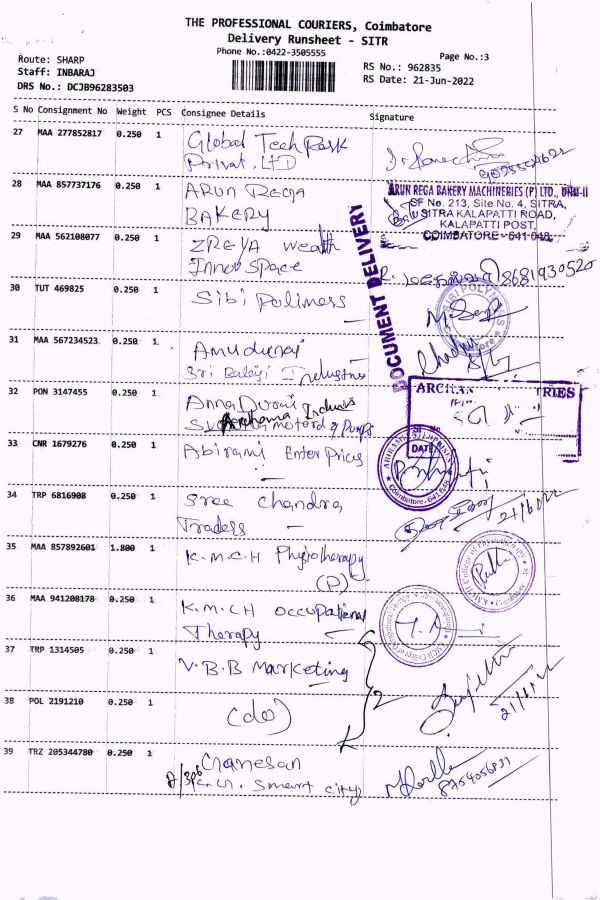 THE PROFESSIONAL COURIERS, Coimbatore
Delivery Runsheet - SITR
Phone No.:0422-3505555
Page No.:3
Route: SHARP
Staff: INBARAJ
DRS No.: DCJB96283503
RS No.: 962835
RS Date: 21-Jun-2022
S No Consignment No Weight PCS Consignee Details Signature
27 MAA 277852817 0.250 1 Global Tech Park
Privat. LTD
28 MAA 857737176 0.250 1 ARUN REGA
BAKERY
ARUN REGA BAKERY MACHINERIES (P) LTD., UNIT-II
SF No. 213, Site No. 4, SITRA,
SITRA KALAPATTI ROAD,
KALAPATTI POST,
COIMBATORE - 641 048.
DOCUMENT DELIVERY
29 MAA 562108077 0.250 1 ZREYA wealth
Inner Space
8681930520
30 TUT 469825 0.250 1 Sibi Polimers
31 MAA 567234523 0.250 1 Amudurai
Sri Balaji Industries
32 PON 3147455 0.250 1 Anna Durai
motors & Pumps
ARCHANA TRIES
DATE
33 CNR 1679276 0.250 1 Abirami Enter Prices
Coimbatore - 641 048
34 TRP 6816908 0.250 1 Sree Chandra
Traders
21/6/22
35 MAA 857892601 1.800 1 K.M.C.H Physiotherapy
(P)
36 MAA 941208178 0.250 1 K.M.CH occupational
Therapy
37 TRP 1314505 0.250 1 V.B.B Marketing
2
38 POL 2191210 0.250 1 (do)
39 TRZ 205344780 0.250 1 Ganesan
Smart city
8754056831